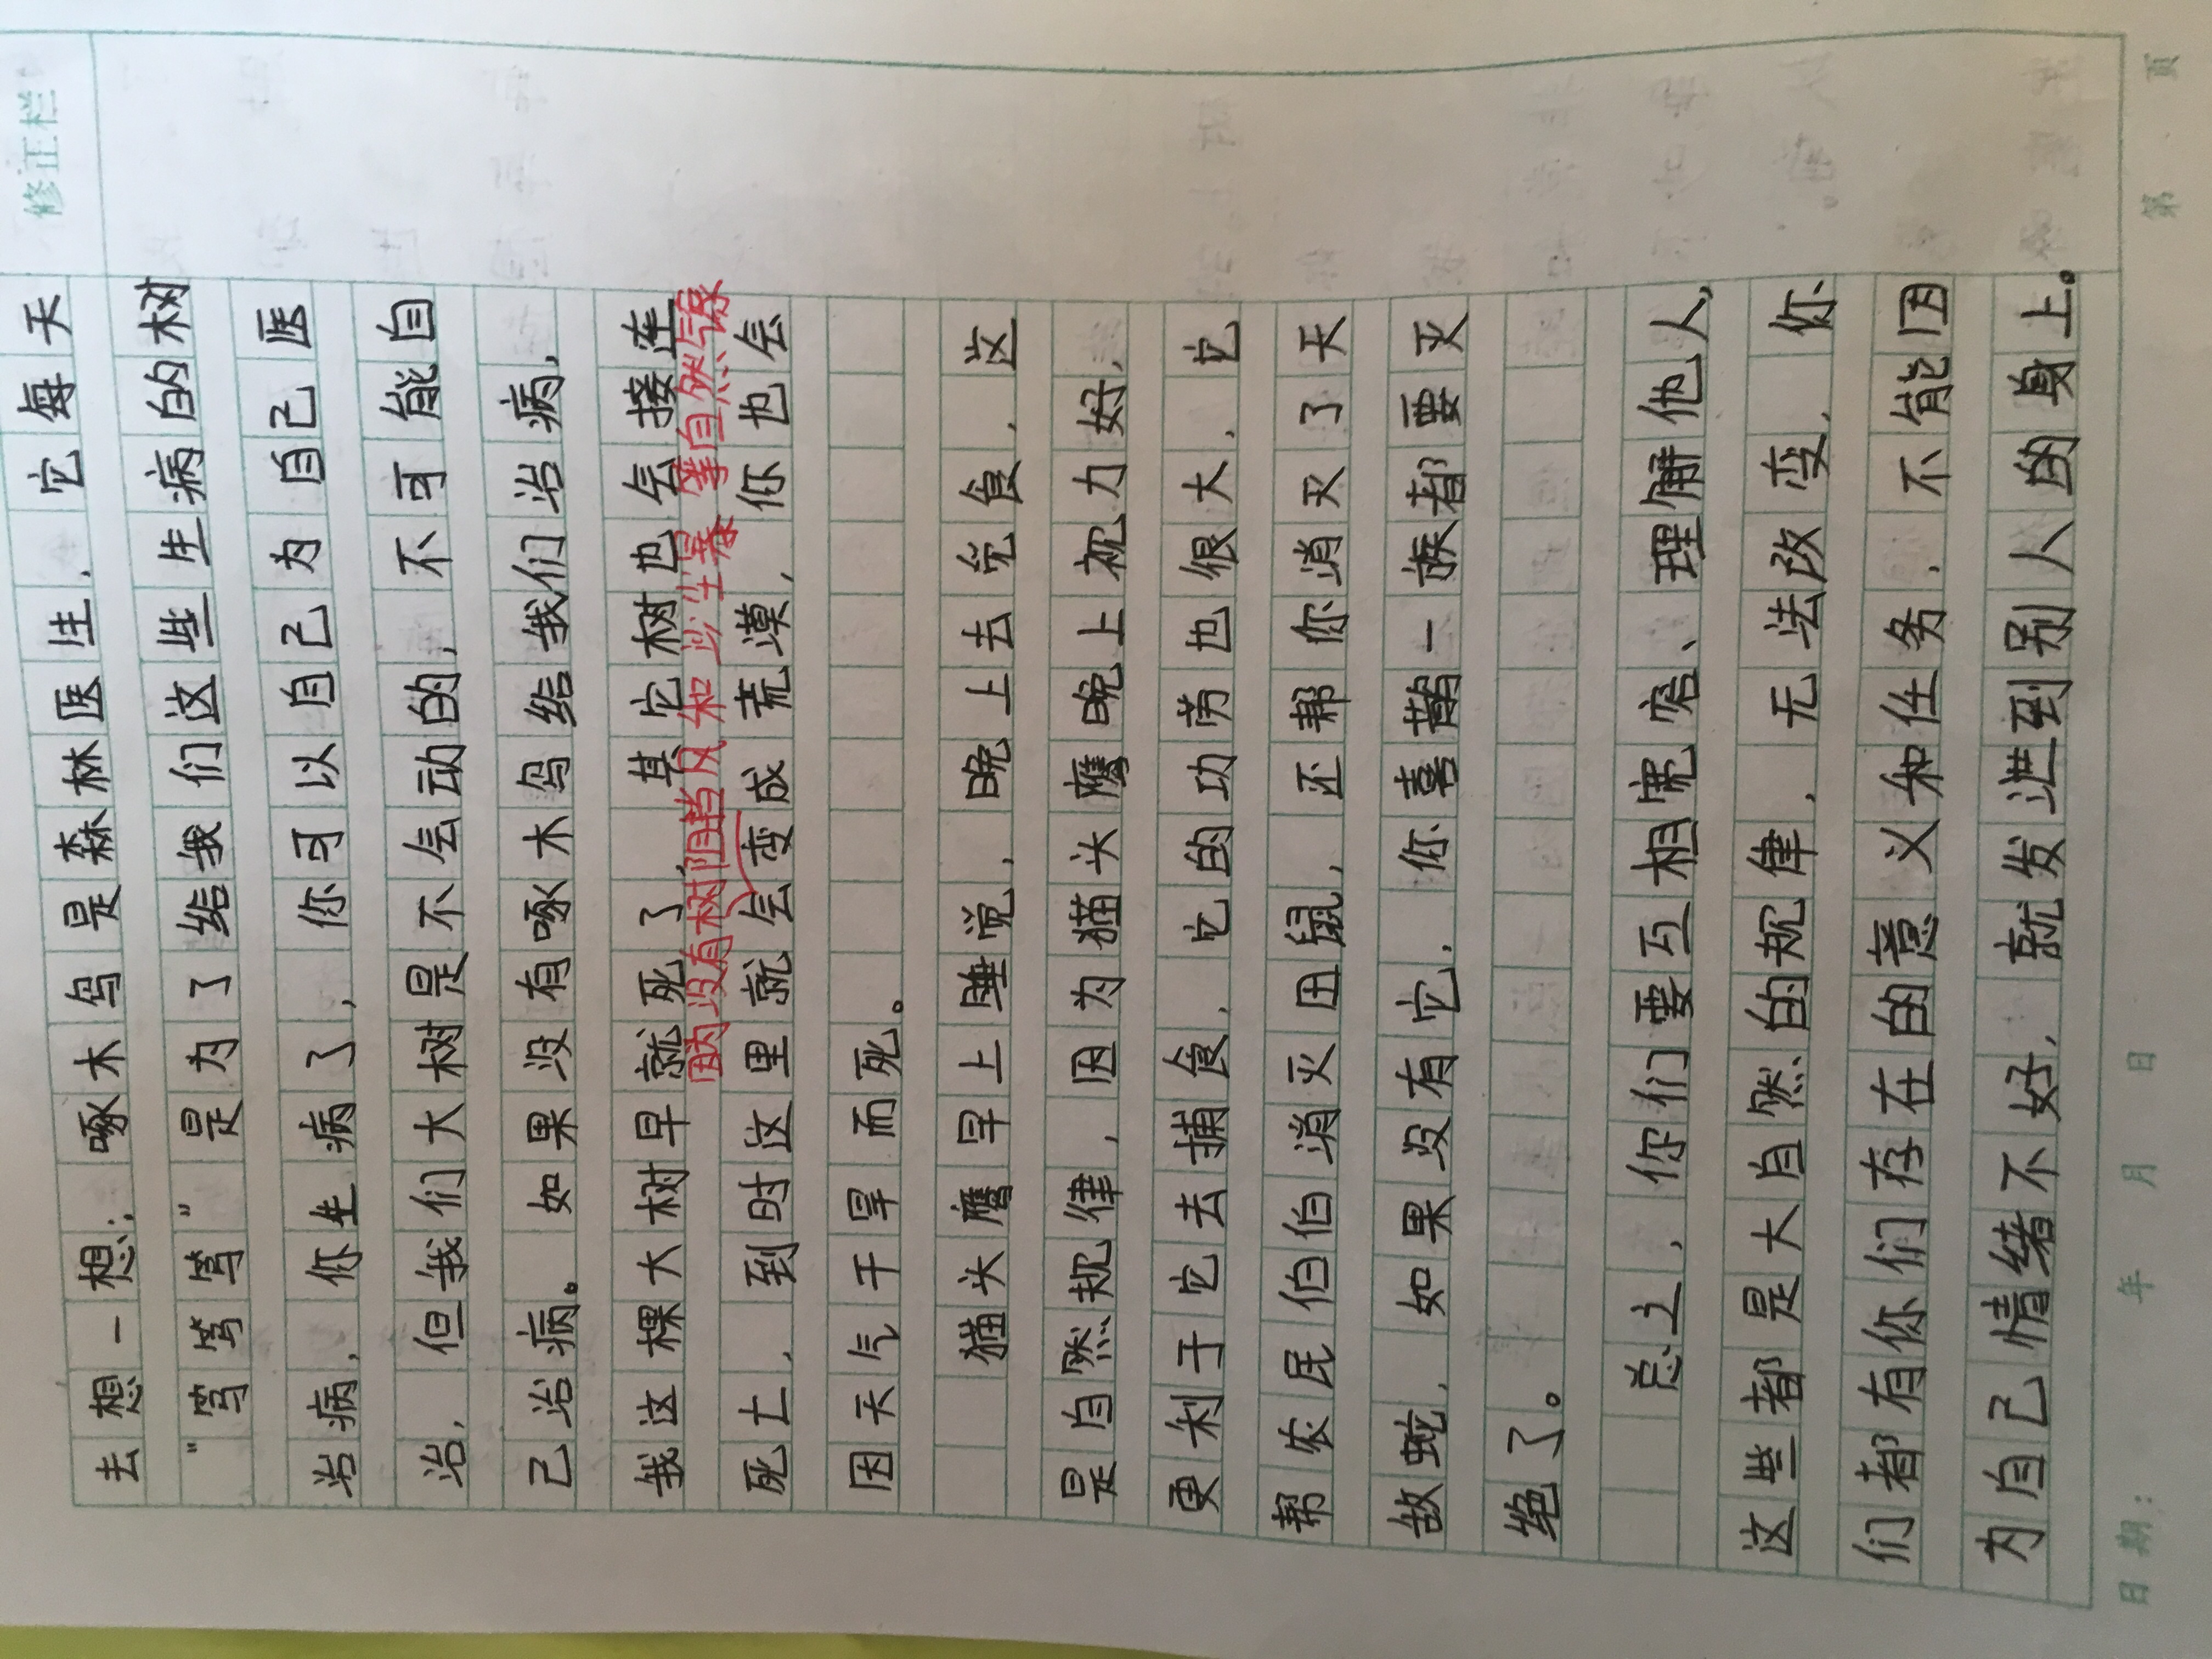 修正栏
去想一想：啄木鸟是森林医生，它每天
“笃笃笃”是为了给我们这些生病的树
治病，你生病了，你可以自己为自己医
治，但我们大树是不会动的，不可能自
己治病。如果没有啄木鸟给我们治病，
我这棵大树早就死了，其它树也会接连
因为没有树阻挡风和沙尘暴等自然气象
死亡，到时这里就会变成荒漠，你也会
因天气干旱而死。
猫头鹰早上睡觉，晚上去觅食，这
是自然规律，因为猫头鹰晚上视力好，
更利于它去捕食，它的功劳也很大，它
帮农民伯伯消灭田鼠，还帮你消灭了天
敌蛇，如果没有它，你喜鹊一族都要灭
绝了。
总之，你们要互相宽容、理解他人，
这些都是大自然的规律，无法改变，你
们都有你们存在的意义和任务，不能因
为自己情绪不好，就发泄到别人的身上。
日期： 年 月 日 第 页